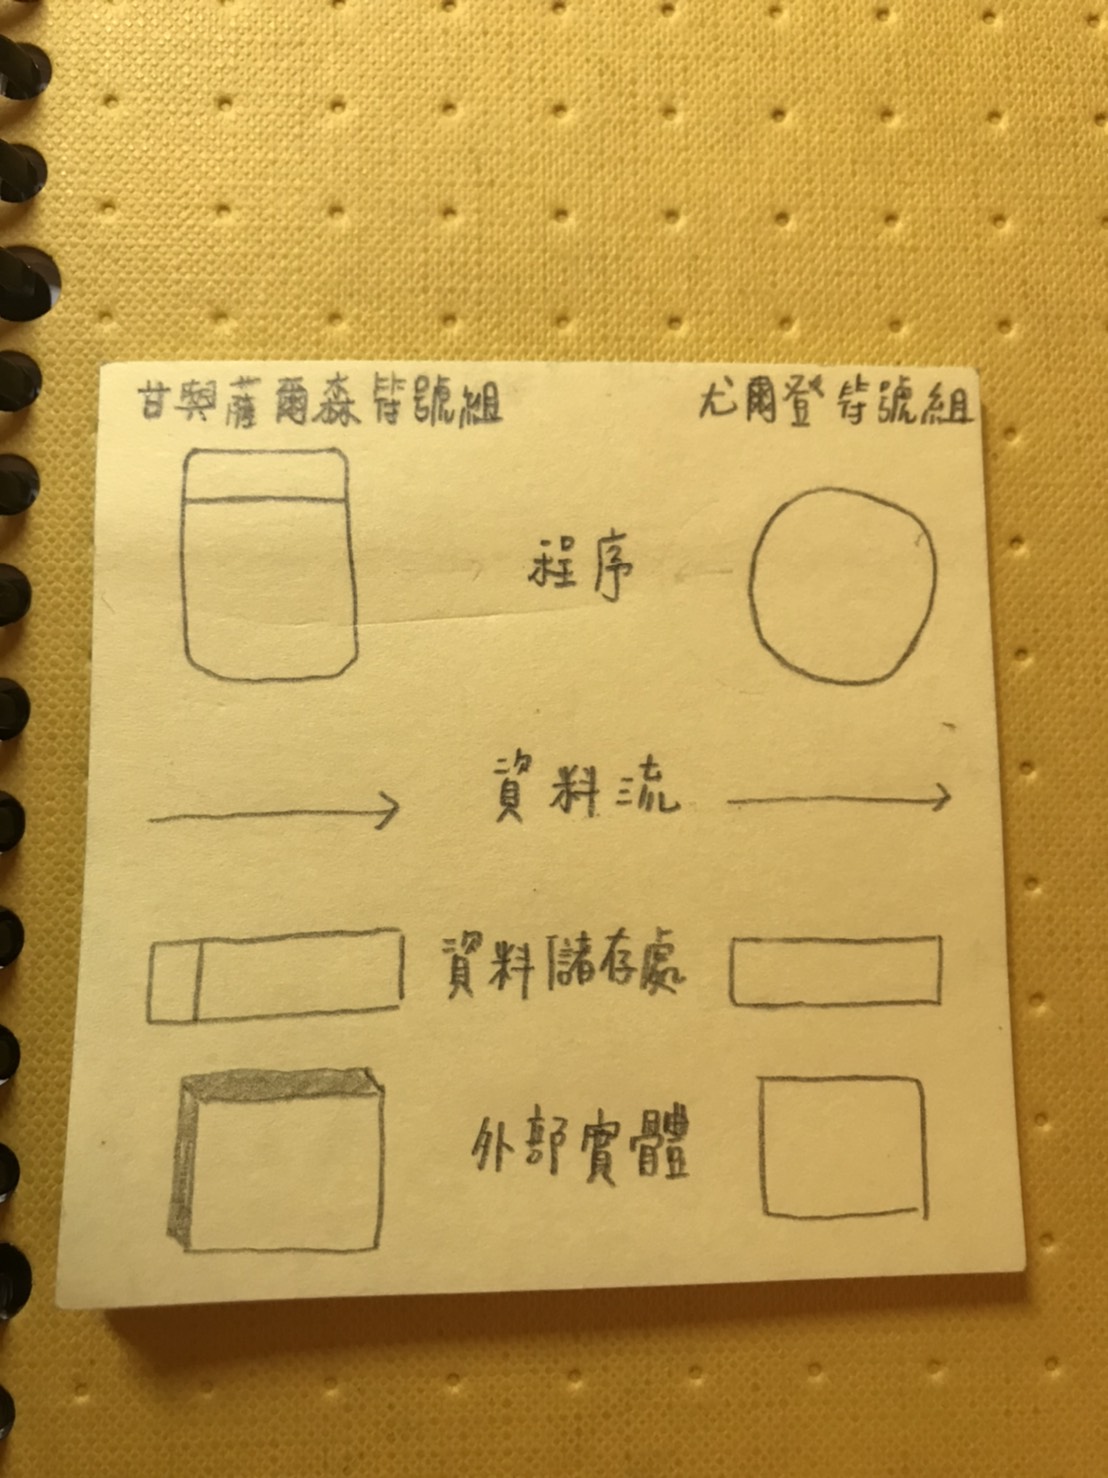 甘與薩爾森符號組
尤爾登符號組
程序
資料流
資料儲存處
外部實體